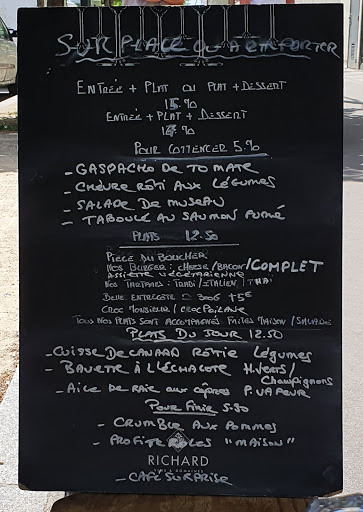 SUR PLACE OU A EMPORTER
ENTRÉE + PLAT OU PLAT + DESSERT
15.90
ENTRÉE + PLAT + DESSERT
POUR COMMENCER 5.90
- GASPACHO DE TOMATE
- CHÈVRE RÔTI AUX LÉGUMES
- SALADE DE MUSEAU
- TABOULÉ AU SAUMON FUMÉ
PLATS 12.50
PIECE DU BOUCHER
NOS BURGER: CHEESE/BACON/COMPLET
ASSIETTE VÉGÉTARIENNE
NOS TARTARES: TRADI/ITALIEN/THAI
BELLE ENTRECOTE 300G +5€
CROC MONSIEUR/CROC POILANE
TOUS NOS PLATS SONT ACCOMPAGNÉS FRITES MAISON/SALADE
PLATS DU JOUR 12.50
- CUISSE DE CANARD RÔTIE LÉGUMES
- BAVETTE À L'ÉCHALOTE H.VERTS/
Champignons
- AILE DE RAIE AUX CÂPRES P. VAPEUR
POUR FINIR 5.90
- CRUMBLE AUX POMMES
- PROFITEROLES "MAISON"
RICHARD
- CAFÉ SURPRISE